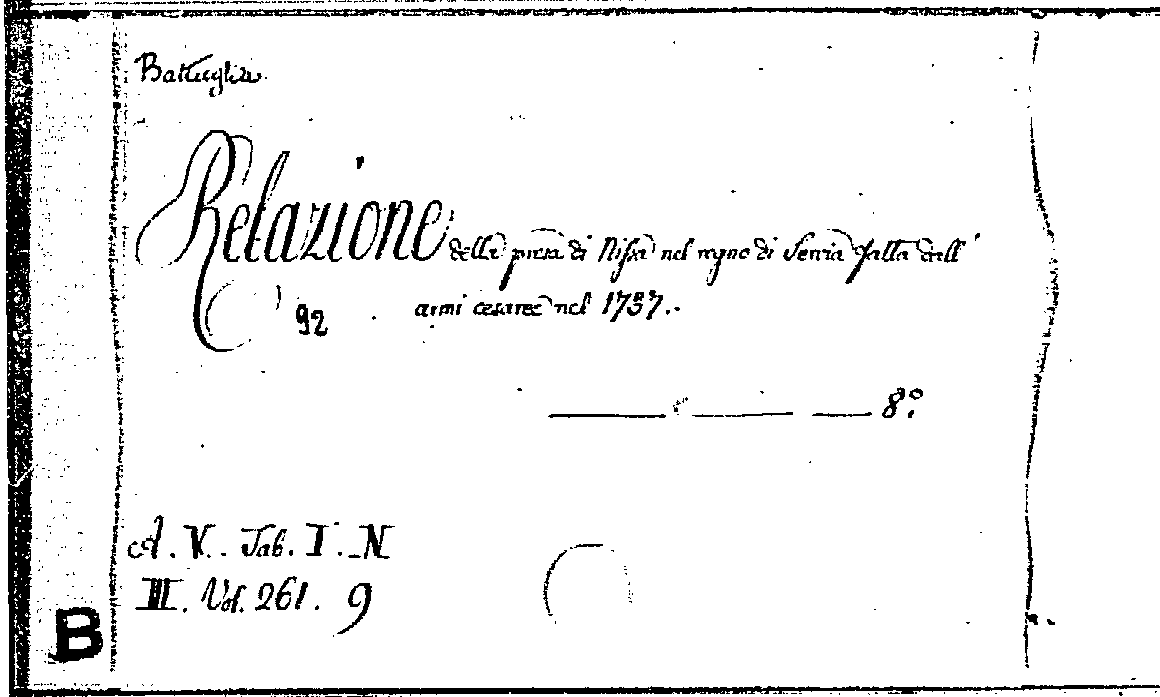 Battaglia
Relazione della presa di Nissa nel regno di Servia fatta dall'
92 armi cesaree nel 1737.
8º.
A. V. Tab. I. N
III. Vol. 261. 9
B